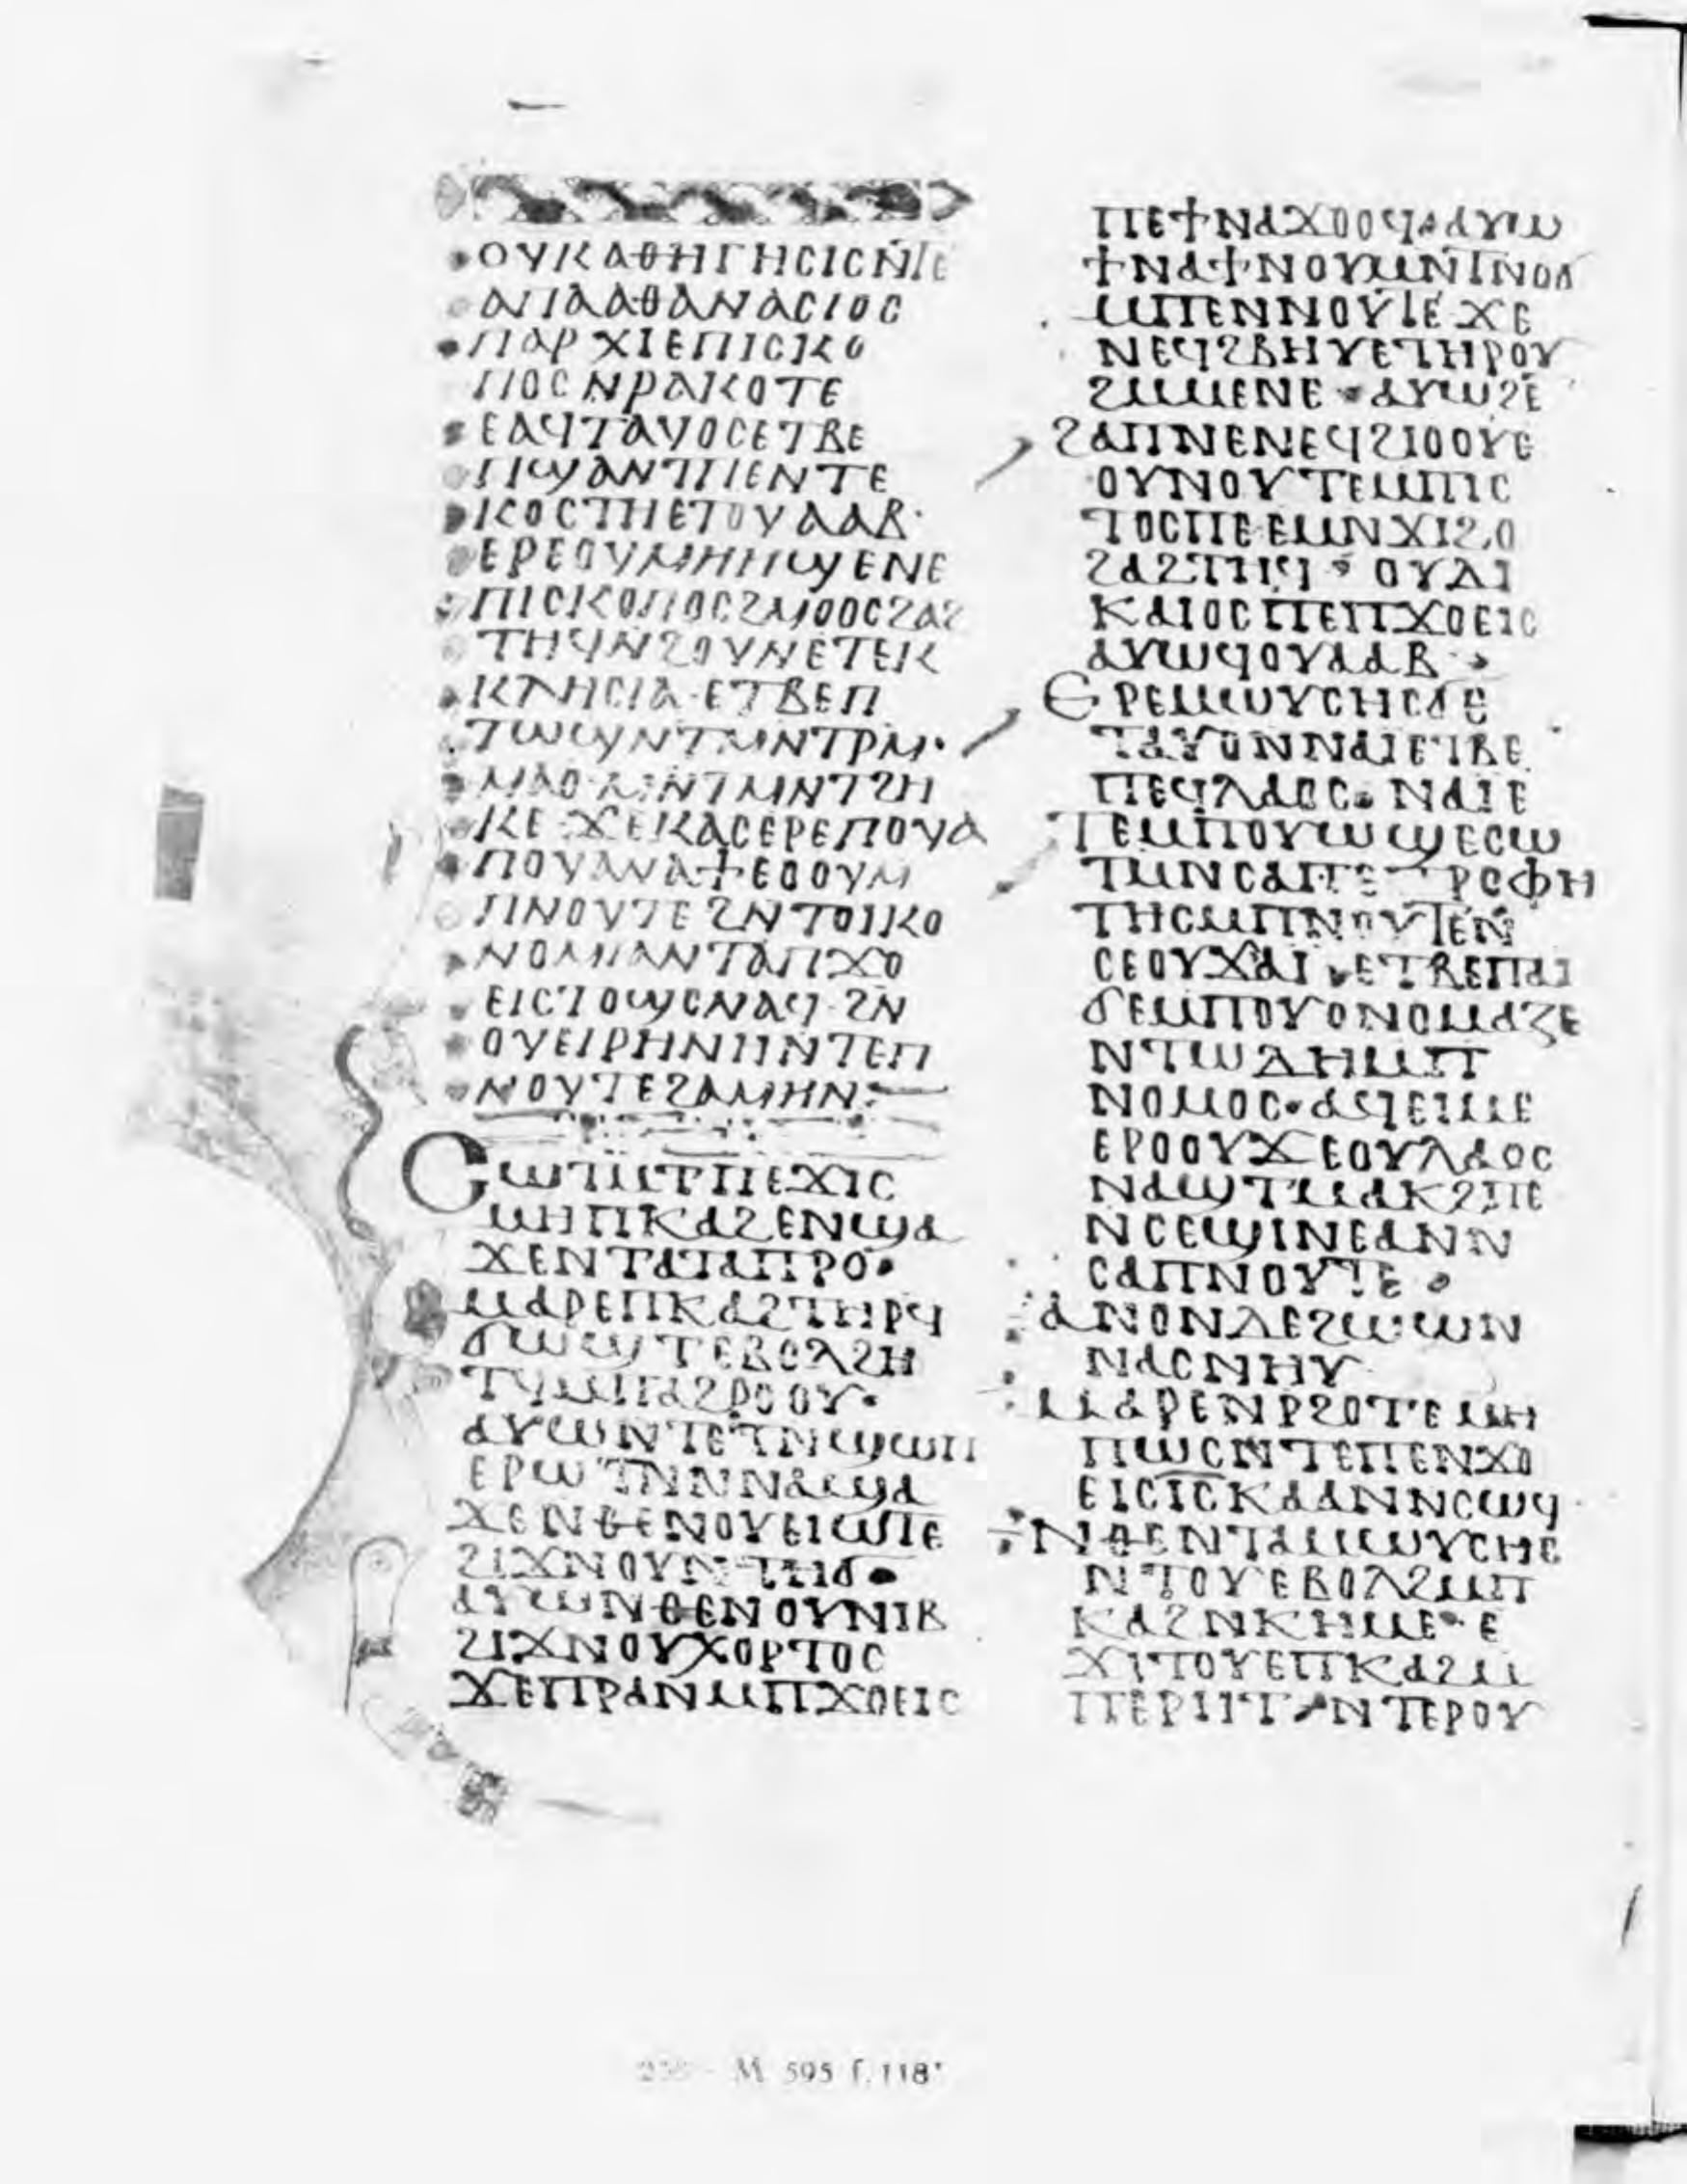 ⲟⲩⲕⲁⲑⲏⲅⲏⲥⲓⲥⲛ̄ⲧⲉ
ⲁⲡⲁⲁⲑⲁⲛⲁⲥⲓⲟⲥ
ⲡⲁⲣⲭⲓⲉⲡⲓⲥⲕⲟ
ⲡⲟⲥⲛⲣⲁⲕⲟⲧⲉ
ⲉⲁϥⲧⲁⲩⲟⲥⲉⲧⲃⲉ
ⲡϣⲁⲛⲧⲡⲉⲛⲧⲉ
ⲕⲟⲥⲧⲏⲉⲧⲟⲩⲁⲁⲃ·
ⲉⲣⲉⲟⲩⲙⲏⲏϣⲉⲛⲉ
ⲡⲓⲥⲕⲟⲡⲟⲥϩⲙⲟⲟⲥϩⲁϩ
ⲧⲏϥⲛϩⲟⲩⲛⲉⲧⲉⲕ
ⲕⲗⲏⲥⲓⲁ·ⲉⲧⲃⲉⲡ
ⲧⲱϣⲛⲧⲙⲛⲧⲣⲙ·
ⲙⲁⲟ·ⲙⲛⲧⲙⲛⲧϩⲏ
ⲕⲉ·ϫⲉⲕⲁⲥⲉⲣⲉⲡⲟⲩⲁ
ⲡⲟⲩⲁⲛⲁϯⲉⲟⲟⲩⲙ
ⲡⲛⲟⲩⲧⲉϩⲛⲧⲟⲓⲕⲟ
ⲛⲟⲙⲓⲁⲛⲧⲁⲡϫⲟ
ⲉⲓⲥⲧⲟϣⲥⲛⲁϥ·ϩⲛ
ⲟⲩⲉⲓⲣⲏⲛⲏⲛⲧⲉⲡ
ⲛⲟⲩⲧⲉϩⲁⲙⲏⲛ:—
ⲥⲱⲧⲙⲧⲡⲉϫⲓⲥ
ⲙⲏⲡⲕⲁϩⲉⲛϣⲁ
ϫⲉⲛⲧⲁⲧⲁⲡⲣⲟ·
ⲙⲁⲣⲉⲡⲕⲁϩⲧⲏⲣϥ
ϭⲱϣⲧⲉⲃⲟⲗϩⲏ
ⲧϥⲙⲡⲁϩⲣⲟⲟⲩ·
ⲁⲩⲱⲛⲧⲉⲧⲛϣⲱⲡ
ⲉⲣⲱⲧⲛⲛⲛⲁϣⲁ
ϫⲉⲛⲑⲉⲛⲟⲩⲉⲓⲱⲧⲉ
ϩⲓϫⲛⲟⲩⲛⲧⲏϭ·
ⲁⲩⲱⲛⲑⲉⲛⲟⲩⲛⲓⲃ
ϩⲓϫⲛⲟⲩⲭⲟⲣⲧⲟⲥ
ϫⲉⲡⲣⲁⲛⲙⲡϫⲟⲉⲓⲥ
ⲡⲉϯⲛⲁϫⲟⲟϥ·ⲁⲩⲱ
ϯⲛⲁϯⲛⲟⲩⲙⲛⲧⲛⲟϭ
ⲙⲡⲉⲛⲛⲟⲩⲧⲉ·ϫⲉ
ⲛⲉϥϩⲃⲏⲩⲉⲧⲏⲣⲟⲩ
ϩⲙⲙⲉⲛⲉ·ⲁⲩⲱϩⲉ
ϩⲁⲡⲛⲉⲛⲉϥϩⲓⲟⲟⲩⲉ
ⲟⲩⲛⲟⲩⲧⲉⲙⲡⲓⲥ
ⲧⲟⲥⲡⲉ·ⲉⲙⲛϫⲓϩⲟ
ϩⲁϩⲧⲏϥ·ⲟⲩⲇⲓ
ⲕⲁⲓⲟⲥⲡⲉⲡϫⲟⲉⲓⲥ
ⲁⲩⲱϥⲟⲩⲁⲁⲃ·
ⲉⲣⲉⲙⲱⲩⲥⲏⲥϭⲉ
ⲧⲁⲩⲟⲛⲛⲁⲓⲉⲧⲃⲉ
ⲡⲉϥⲗⲁⲟⲥ·ⲛⲁⲓⲉ
ⲧⲉⲙⲡⲟⲩⲱϣⲉⲥⲱ
ⲧⲙⲛⲥⲁⲡⲉⲡⲣⲟⲫⲏ
ⲧⲏⲥⲙⲡⲛⲟⲩⲧⲉⲛ
ⲥⲉⲟⲩϫⲁⲓ·ⲉⲧⲃⲉⲡⲁⲓ
ϭⲉⲙⲡⲟⲩⲟⲛⲟⲙⲁⲍⲉ
ⲛⲧⲱⲇⲏⲙⲡ
ⲛⲟⲙⲟⲥ·ⲁϥⲉⲓⲙⲉ
ⲉⲣⲟⲟⲩϫⲉⲟⲩⲗⲁⲟⲥ
ⲛⲁϣⲧⲙⲁⲕϩⲡⲉ
ⲛⲥⲉϣⲓⲛⲉⲁⲛⲛ
ⲥⲁⲡⲛⲟⲩⲧⲉ·
ⲁⲛⲟⲛⲇⲉϩⲱⲱⲛ
ⲛⲁⲥⲛⲏⲩ
ⲙⲁⲣⲉⲛⲣϩⲟⲧⲉⲙⲏ
ⲡⲱⲥⲛⲧⲉⲡⲉⲛϫⲟ
ⲉⲓⲥⲓ̅ⲥ̅ⲕⲁⲁⲛⲛⲥⲱϥ
ⲛⲑⲉⲛⲧⲁⲙⲱⲩⲥⲏⲥ
ⲛⲧⲟⲩⲉⲃⲟⲗϩⲙⲡ
ⲕⲁϩⲛⲕⲏⲙⲉ·ⲉ
ϫⲓⲧⲟⲩⲉⲡⲕⲁϩⲙ
ⲡⲉⲣⲏⲧ·ⲛⲧⲉⲣⲟⲩ
M 595 f. 118ᵛ